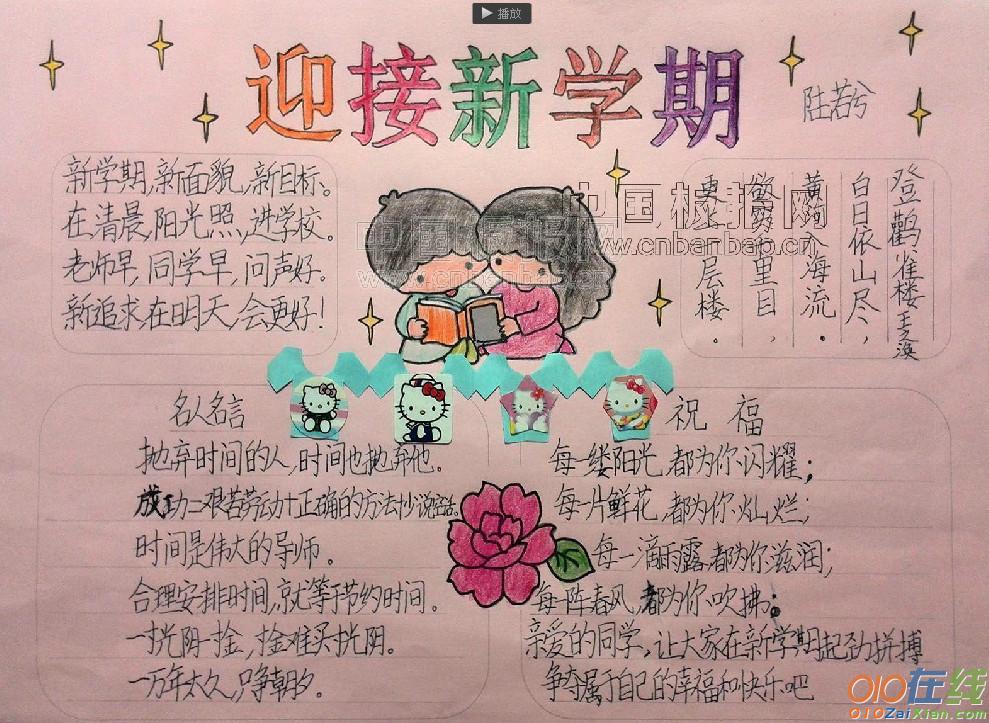 播放
迎接新学期
陆若兮
新学期,新面貌,新目标。
在清晨,阳光照,进学校。
老师早,同学早,问声好。
新追求在明天,会更好!
登鹳雀楼 王之涣
白日依山尽,
黄河入海流.
欲穷里目,
更上层楼.
中国板报网
www.cnbanbao.cn
中国板报网
www.cnbanbao.cn
名人名言
抛弃时间的人,时间也抛弃他。
成功=艰苦劳动+正确的方法+少说空话。
时间是伟大的导师。
合理安排时间,就等于节约时间。
一寸光阴一寸金,寸金难买寸光阴。
一万年太久,只争朝夕。
祝福
每一缕阳光,都为你闪耀;
每一片鲜花,都为你灿烂;
每一滴雨露,都为你滋润;
每一阵春风,都为你吹拂;
亲爱的同学,让大家在新学期起劲拼搏
争夺属于自己的幸福和快乐吧
010在线
010ZaiXian.com